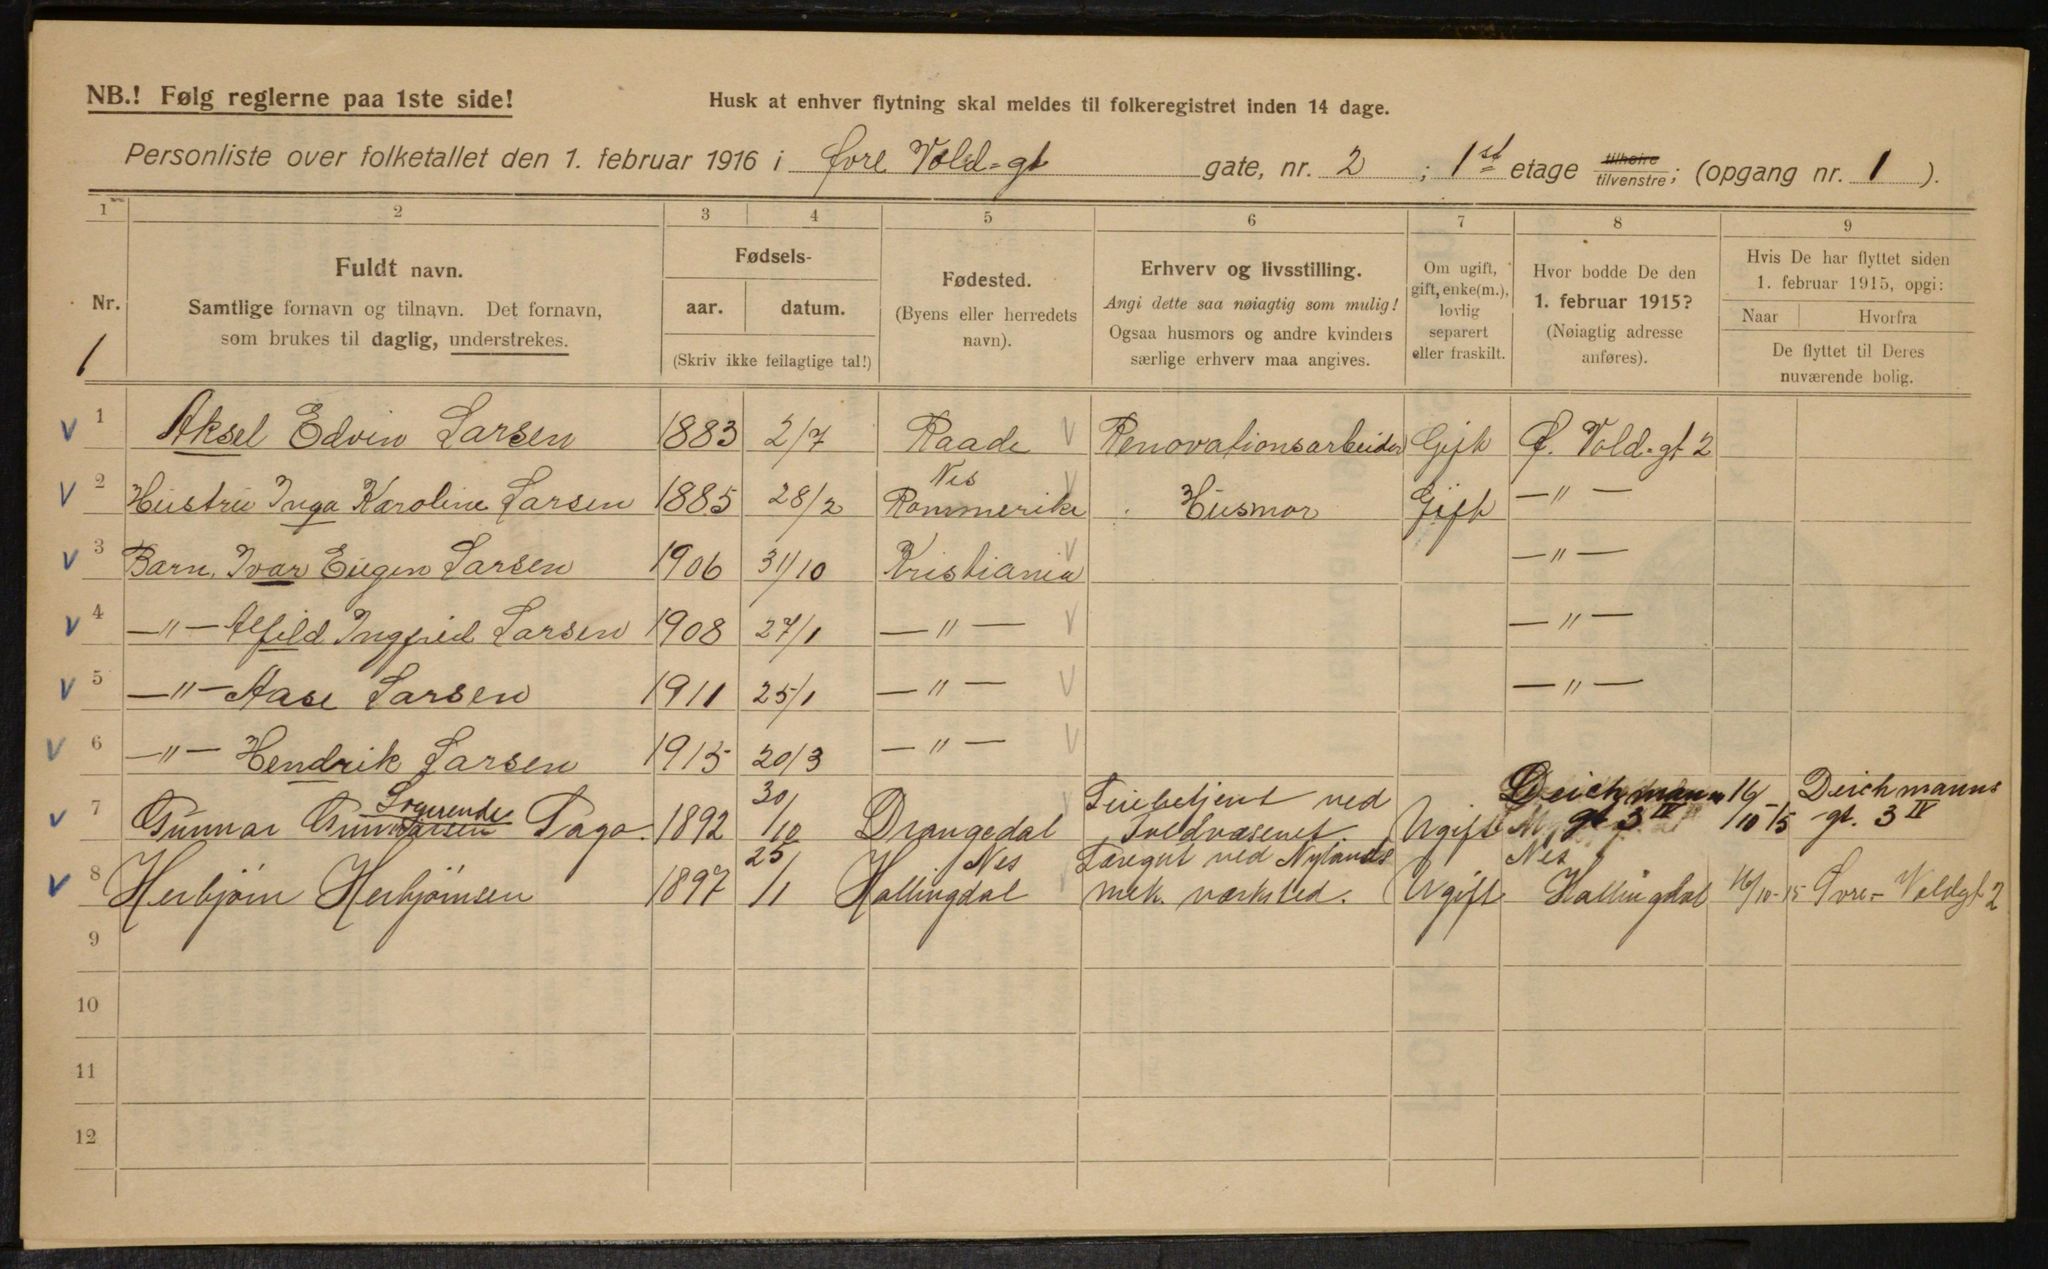 NB.! Følg reglerne paa 1ste side!
Husk at enhver flytning skal meldes til folkeregistret inden 14 dage.
Personliste over folketallet den 1. februar 1916 i Øvre Vold-gt gate, nr. 2 ; 1st etage tilhøire tilvenstre; (opgang nr. 1 ).
1 2 3 4 5 6 7 8 9
Nr. 1
Fuldt navn.
Samtlige fornavn og tilnavn. Det fornavn,
som brukes til daglig, understrekes.
Fødsels-
aar. datum.
(Skriv ikke feilagtige tal!)
Fødested.
(Byens eller herredets
navn).
Erhverv og livsstilling.
Angi dette saa nøiagtig som mulig!
Ogsaa husmors og andre kvinders
særlige erhverv maa angives.
Om ugift,
gift, enke(m.),
lovlig
separert
eller fraskilt.
Hvor bodde De den
1. februar 1915?
(Nøiagtig adresse
anføres).
Hvis De har flyttet siden
1. februar 1915, opgi:
Naar Hvorfra
De flyttet til Deres
nuværende bolig.
1 Aksel Edvin Larsen 1883 2/7 Raade Renovationsarbeider Gift Ø. Vold-gt 2
2 Hustru Inga Karoline Larsen 1885 28/2 Nes Rommerike Husmor Gift —"—
3 Barn, Ivar Eugen Larsen 1906 31/10 Kristiania —"—
4 —"— Alfild Ingfrid Larsen 1908 27/1 —"— —"—
5 —"— Aase Larsen 1911 25/1 —"— —"—
6 —"— Hendrik Larsen 1915 20/3 —"—
7 Logerende Gunnar 1892 30/10 Drangedal ved Ugift Deichmann gt 3 IV 16/10-15 Deichmanns gt. 3 IV
8 Herbjörn Herbjörnsen 1897 25/1 Nes Hallingdal ved Nylands mek. værksted. Ugift Nes Hallingdal 16/10-15 Øvre- Voldgt 2
9
10
11
12